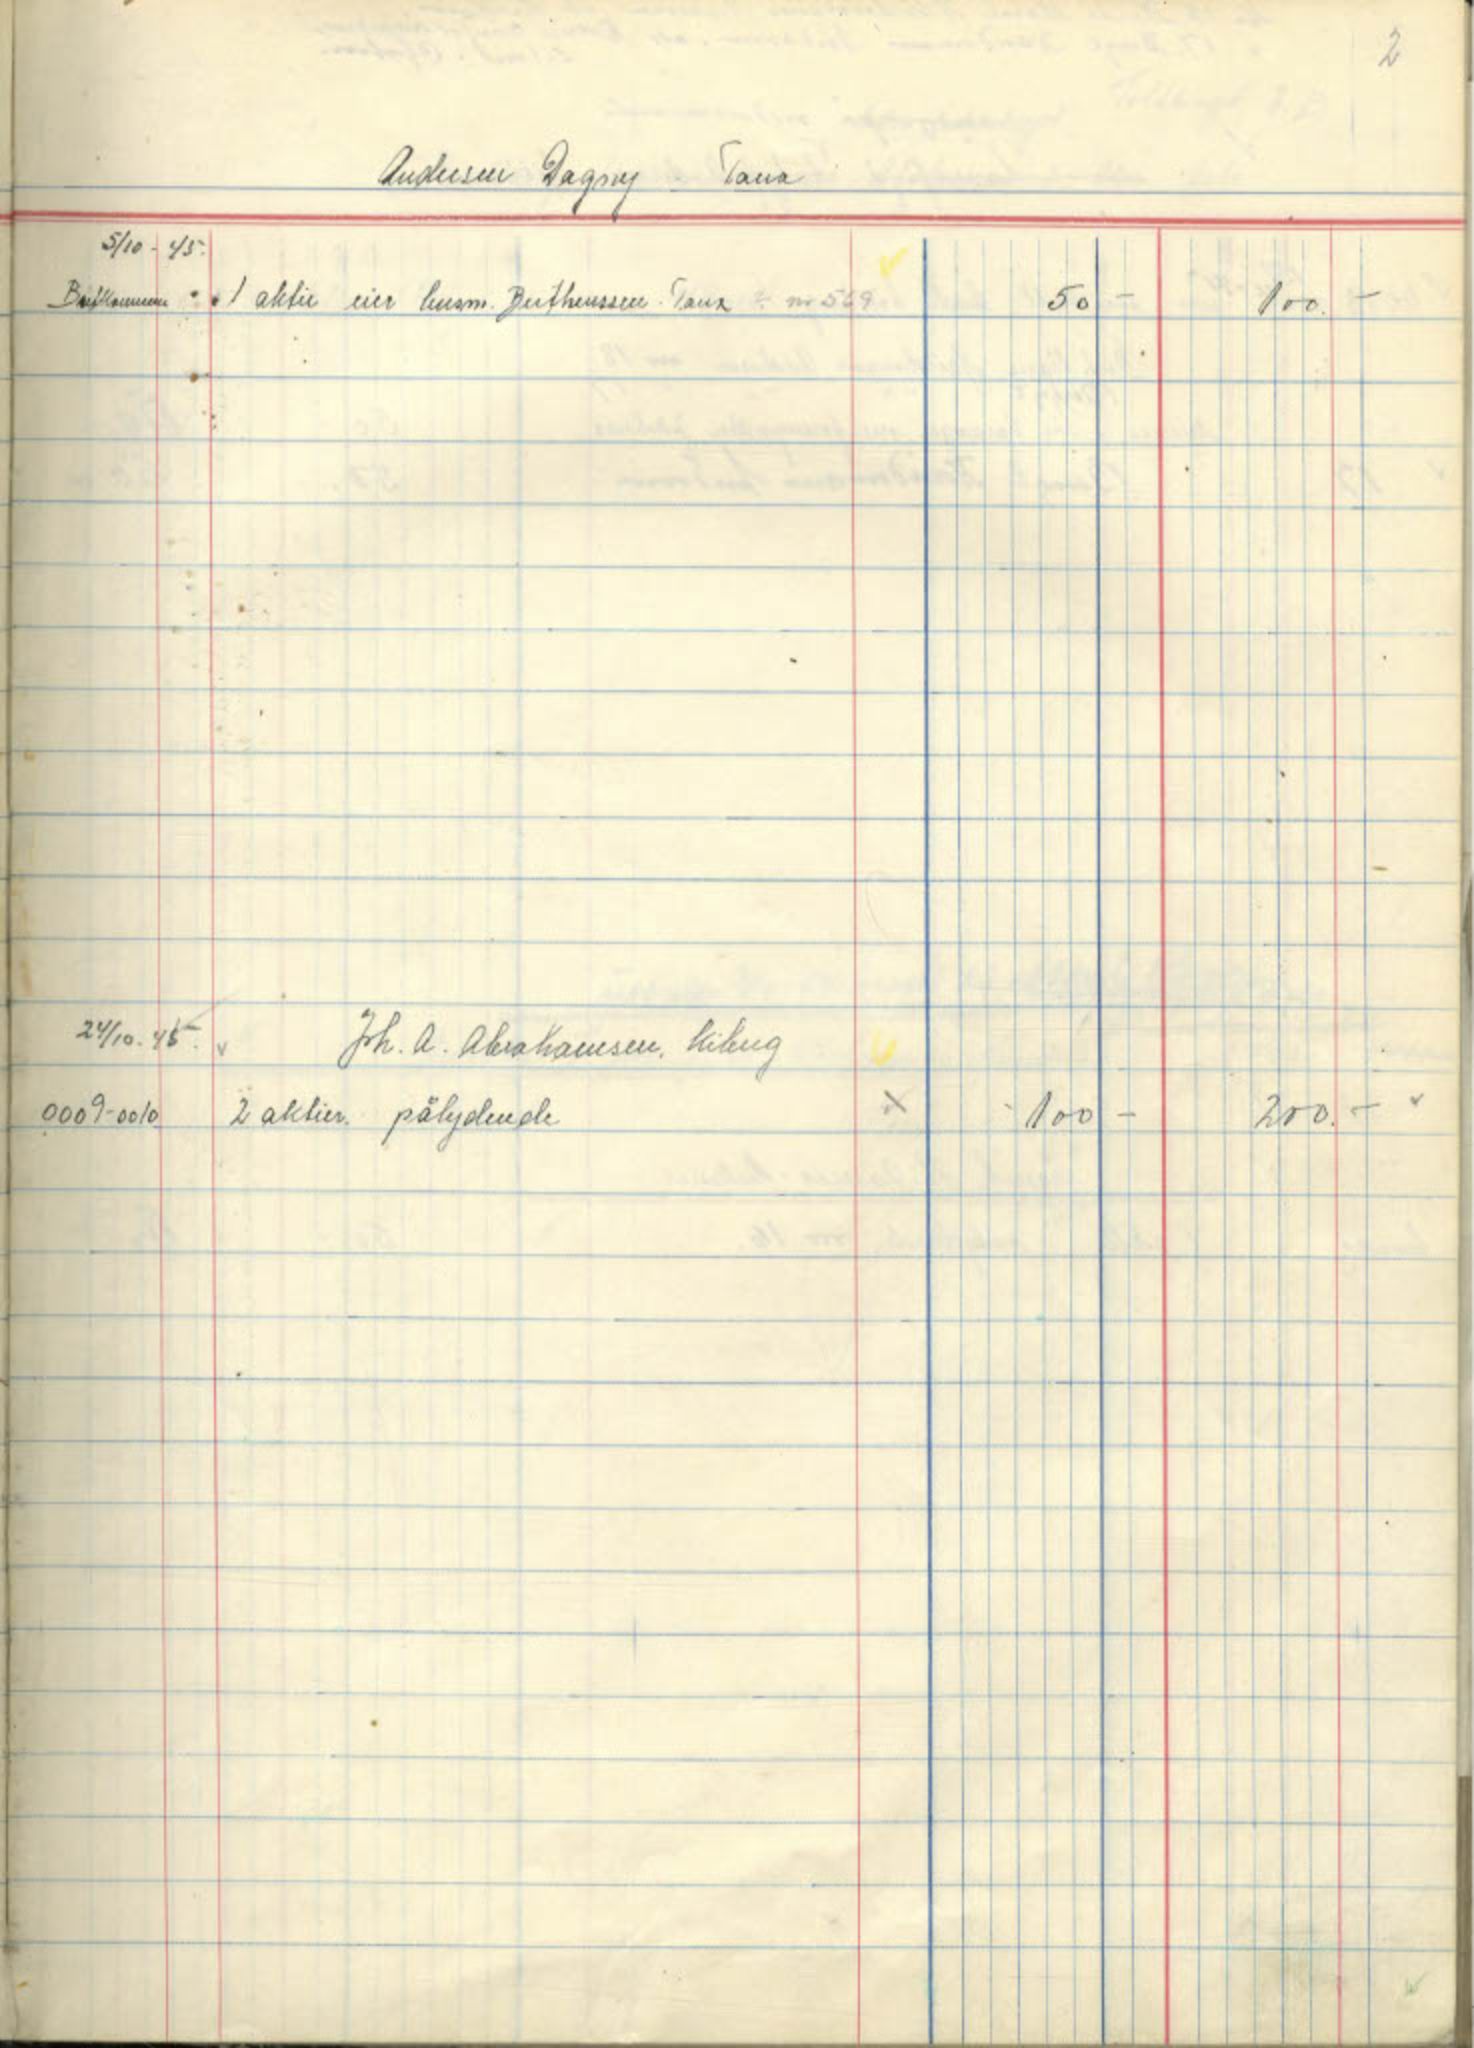 2
Andersen Dagny - Tana
5/10 - 45.
1 aktie eier husm. Berthenssen. Tana nr 569 50 - 100. -
24/10. 45. Joh. A. Abrahamsen, Kiberg
0009-0010 2 aktier. pålydende 100 - 200. -